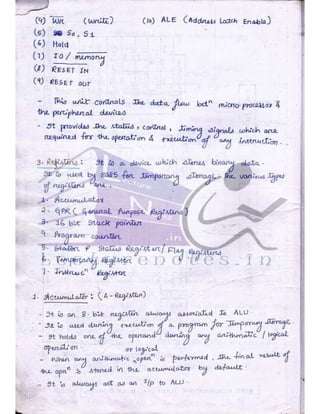 (4) WR (Write) (10) ALE (Address Latch Enable)
(5) S0, S1
(6) Hold
(7) IO / memory
(8) RESET IN
(9) RESET OUT
- This unit controls the data flow betn micro-processor &
the peripheral devices
- It provides the status, control, timing signals which are
required for the operation & execution of any instruction.
3. Registers : It is a device which stores binary data.
It is used by 8085 for temporary storage the various types
of registers are.
1. Accumulator
2. GPR ( General Purpose Registers)
3. 16 bit Stack pointer
4. Program counter
5. Status Register / Flag Registers
6. Temporary Register
7. Instruct" Register
1. Accumulator : (A - Register)
- It is an 8-bit register always associated to ALU.
- It is used during execution of a program for temporary storage.
- It holds one of the operand during any arithmetic / logical
operation. or logical
- when any arithmetic open" is performed, the final result of
the opn" is stored in the accumulator by default.
- It is always act as an I/p to ALU.